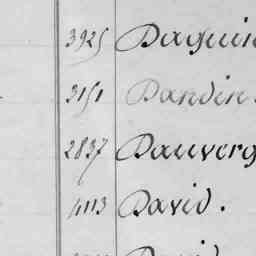 3925 Daquin
3151 Dandin
2837 Dauverg
4113 David.
David